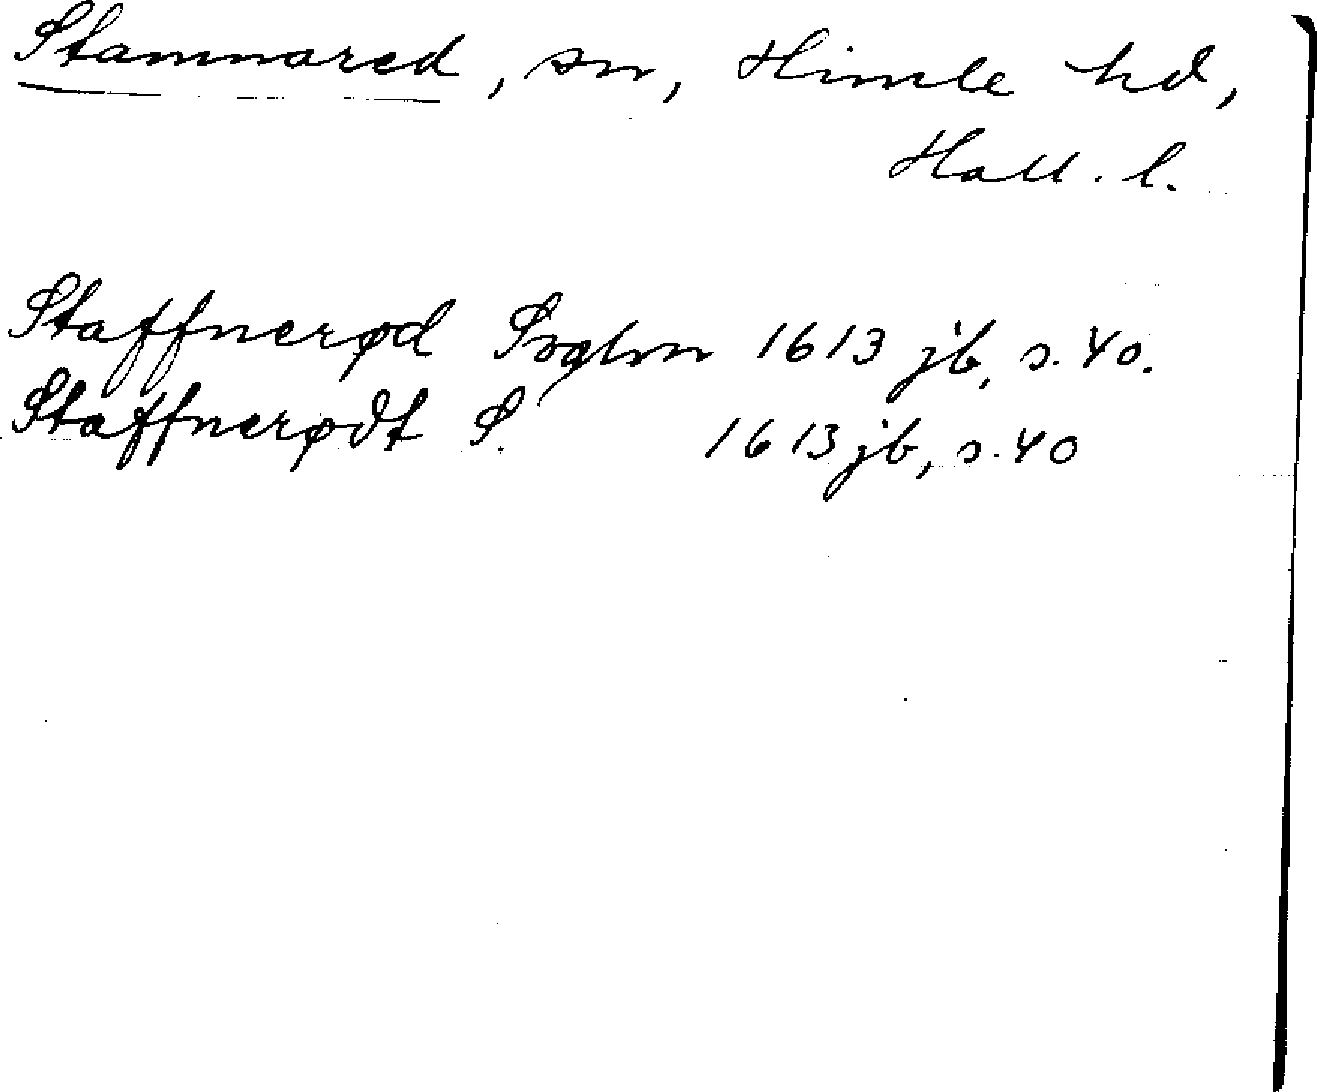 Stamnared, sn, Himle hd,
Hall. l.
Staffnerød Soghn 1613 jb, s. 40.
Staffnerødt S. 1613 jb, s. 40